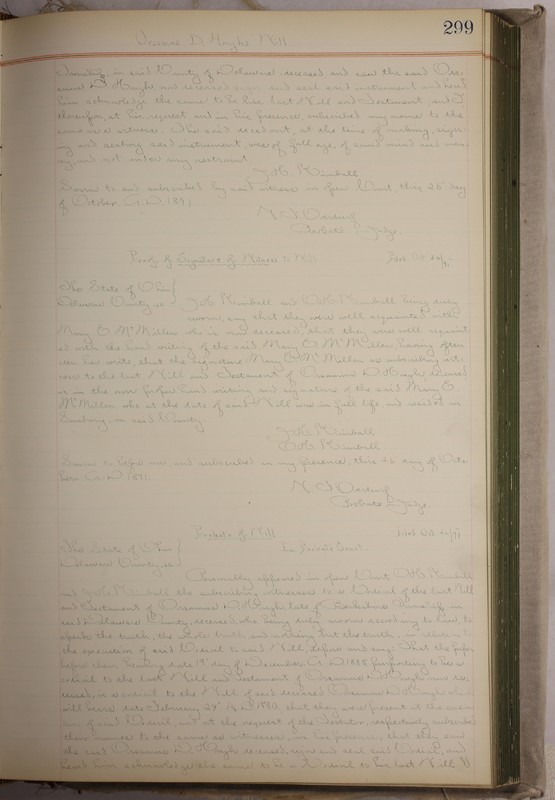 299
D. Hough Will
in said County of Delaware deceased and saw the said
D. Hough now deceased sign and seal said instrument and heard
him acknowledge the same to be his last Will and Testament and I
thereupon, at his request and in his presence, subscribed my name to the
same as a witness. The said at the time of making, sign-
ing and sealing said instrument, was of full age, of sound mind and mem-
ory and not under any restraint.
Kimball
Sworn to and subscribed by said witness in open Court, this 26" day
of October A.D. 1891.
Probate Judge.
Proof of Signature of Witness to Will
Filed Oct 26/91
The State of Ohio
Delaware County, ss Kimball and Kimball being duly
sworn, say that they were well acquainted with
Mary E. McMillen who is now deceased, that they were well acquaint
ed with the hand writing of the said Mary E. McMillen having often
seen her write, that the signature Mary E. McMillen as subscribing wit-
ness to the last Will and Testament of D. Hough deceased
is in the own proper hand writing and signature of the said Mary E.
McMillen who at the date of said Will was in full life, and resided in
Sunbury, in said County.
Kimball
Kimball
Sworn to before me and subscribed in my presence, this 26 day of Octo
ber A.D. 1891.
Probate Judge.
Probate of Will
Filed Oct 26/91
The State of Ohio
Delaware County, ss In Probate Court.
Personally appeared in open Court Kimball
and Kimball the subscribing witnesses to a Codicil of the last Will
and Testament of D. Hough late of Berkshire Township in
said Delaware County, deceased who being duly sworn according to law, to
speak the truth, the whole truth and nothing but the truth, in relation to
the execution of said Codicil to said Will, depose and say: That the paper
before them bearing date 1st day of December A.D. 1885 purporting to be a
codicil to the last Will and Testament of D. Hough now de-
ceased, is a codicil to the Will of said deceased D. Hough which
will bears date February 27" A.D. 1880, that they were present at the execu
tion of said Codicil, and at the request of the Testator, respectively subscribed
their names to the same as witnesses, in his presence, that they saw
the said D. Hough deceased, sign and seal said Codicil, and
heard him acknowledge the same to be a Codicil to his last Will &